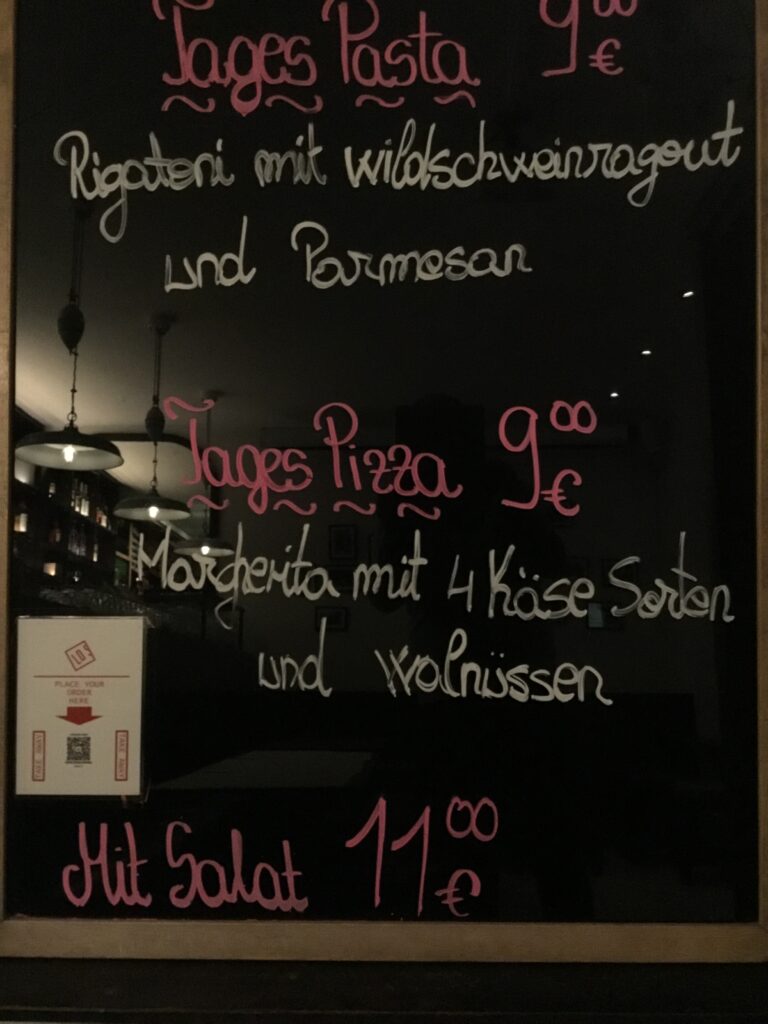 Tages Pasta 9⁰⁰ €
Rigatoni mit Wildschweinragout
und Parmesan
Tages Pizza 9⁰⁰ €
Margherita mit 4 Käse Sorten
und Walnüssen
PLACE YOUR
ORDER
HERE
TAKE AWAY
TAKE AWAY
Mit Salat 11⁰⁰ €